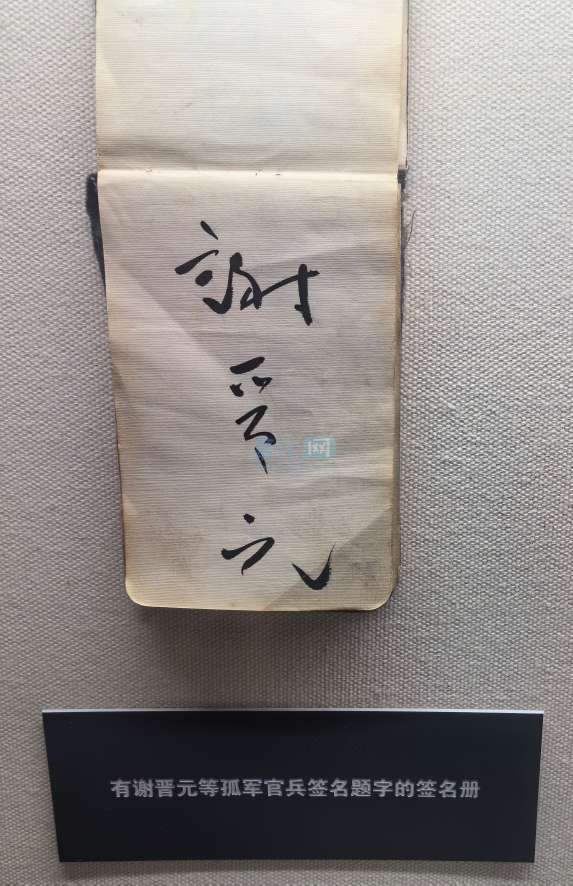 謝晋元
有谢晋元等孤军官兵签名题字的签名册
网